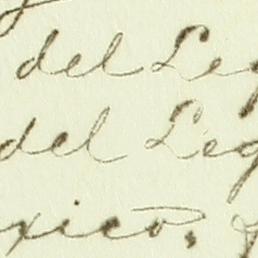 del Leg
del Leg
xico.